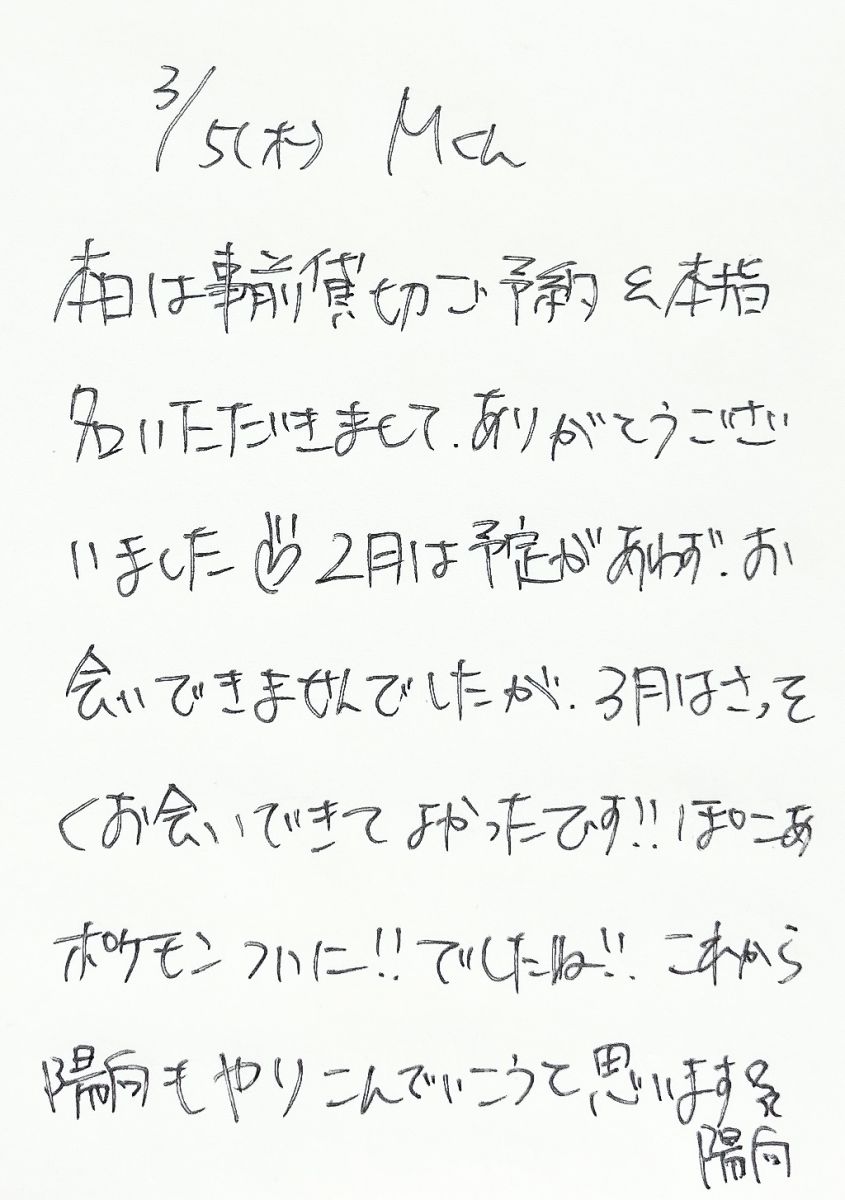 3/5(木) Mくん
本日は事前貸切ご予約&本指
名いただきまして、ありがとうござ
いました✌2月は予定があわず、お
会いできませんでしたが、3月はさっそ
くお会いできてよかったです!!ぽこあ
ポケモンついに!!でしたね!!これから
陽向もやりこんでいこうて思います
陽向